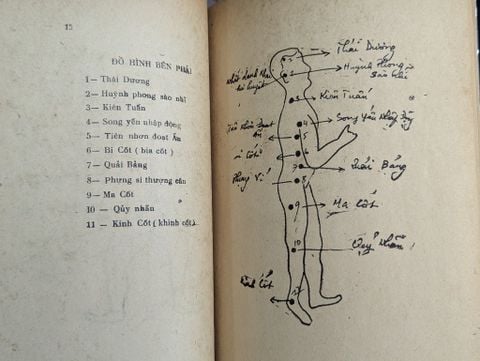 15
ĐỒ HÌNH BÊN PHẢI
1— Thái Dương
2— Huỳnh phong sào nhĩ
3— Kiên Tuấn
4— Song yến nhập động
5— Tiên nhơn đoạt ấn
6— Bí Cốt ( bia cốt )
7— Quải Bảng
8— Phụng sĩ thượng cản
9— Ma Cốt
10 — Qủy nhãn
11 — Kinh Cốt ( khinh cốt )
Thái Dương
Huỳnh Phong
Sào Nhĩ
3
Kiên Tuấn
4
Song Yến Nhập Động
5
6
7
Quải Bảng
8
9
Ma Cốt
10
Quỷ Nhãn